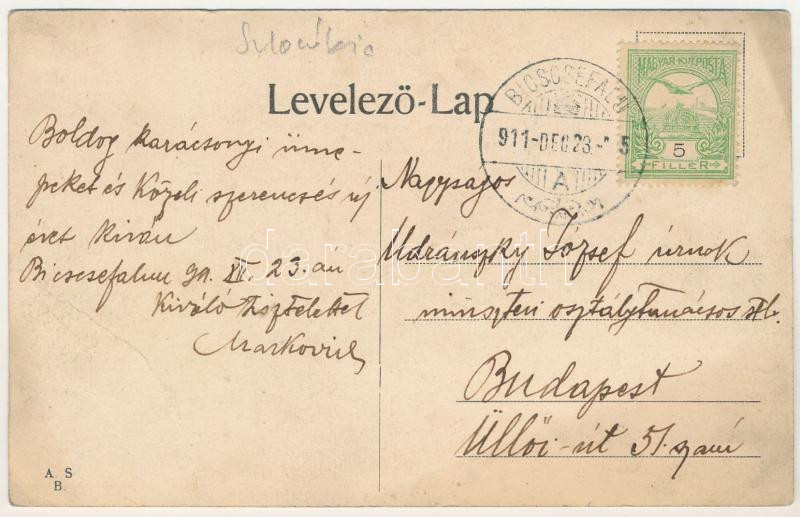 Levelező-Lap
BICSCSEFALU
911-DEC 23.-
5
A
MAGYAR KIR. POSTA
5
FILLER
Boldog karácsonyi ünne-
peket és közeli szerencsés új
évet kiván
Bicscsefalu 911. XII. 23.án
Kiváló tisztelettel
Markovics
Nagyságos
Udránszky József úrnok
miniszteri osztálytanácsos stb.
Budapest
Üllői-út 51. szám
A. S
B.
darabanth